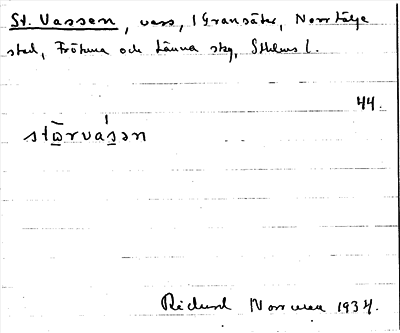 St. Vassen, vass, i Gransäter, Norrtälje
stad, Frötuna och Länna skg, Sthlms l.
44.
stωrvasən
Norrmen 1934.